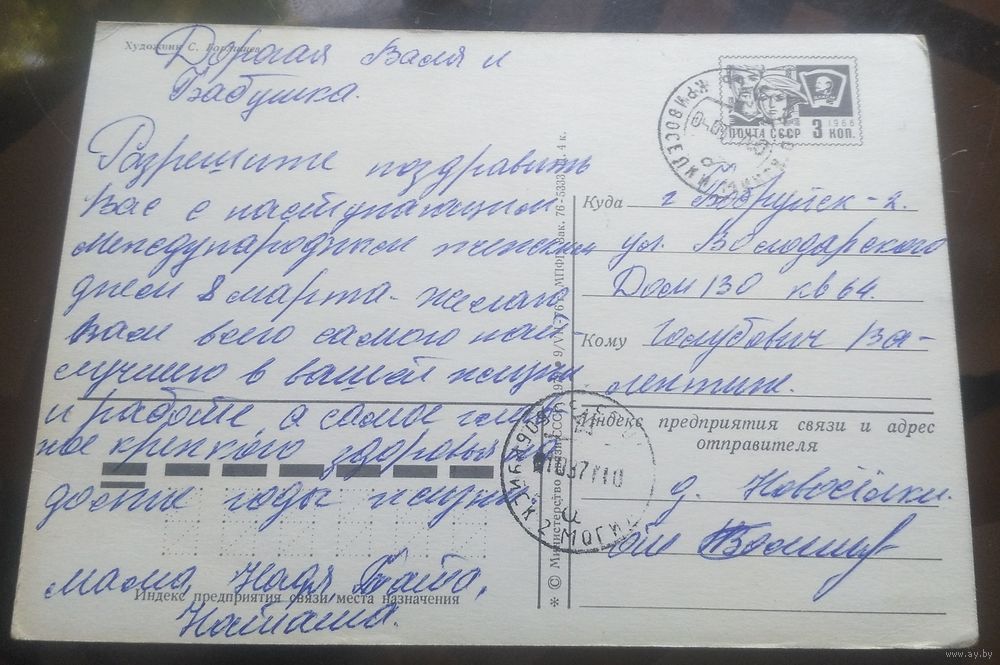 Художник С. Горлищев
Дорогая Валя и
Бабушка.
Разрешите поздравить
Вас с наступающим
международным женским
днем 8 марта. желаю
вам всего самого наи
лучшего в вашей жизни
и работе а самое глав
ное крепкого здоровья на
долги годы жизни.
мама, Надя,
Наташа.
Индекс предприятия связи места назначения
* © Министерство связи СССР. 1976
МПФГ. Зак. 76-5333. Ц. 4 к.
ПОЧТА СССР 3 КОП.
1966
Куда г Бобруйск-2.
ул. Володарского
Дом 130 кв 64.
Кому Голубович Ва-
лентине.
Индекс предприятия связи и адрес
отправителя
д. Новосёлки.
www.ay.by